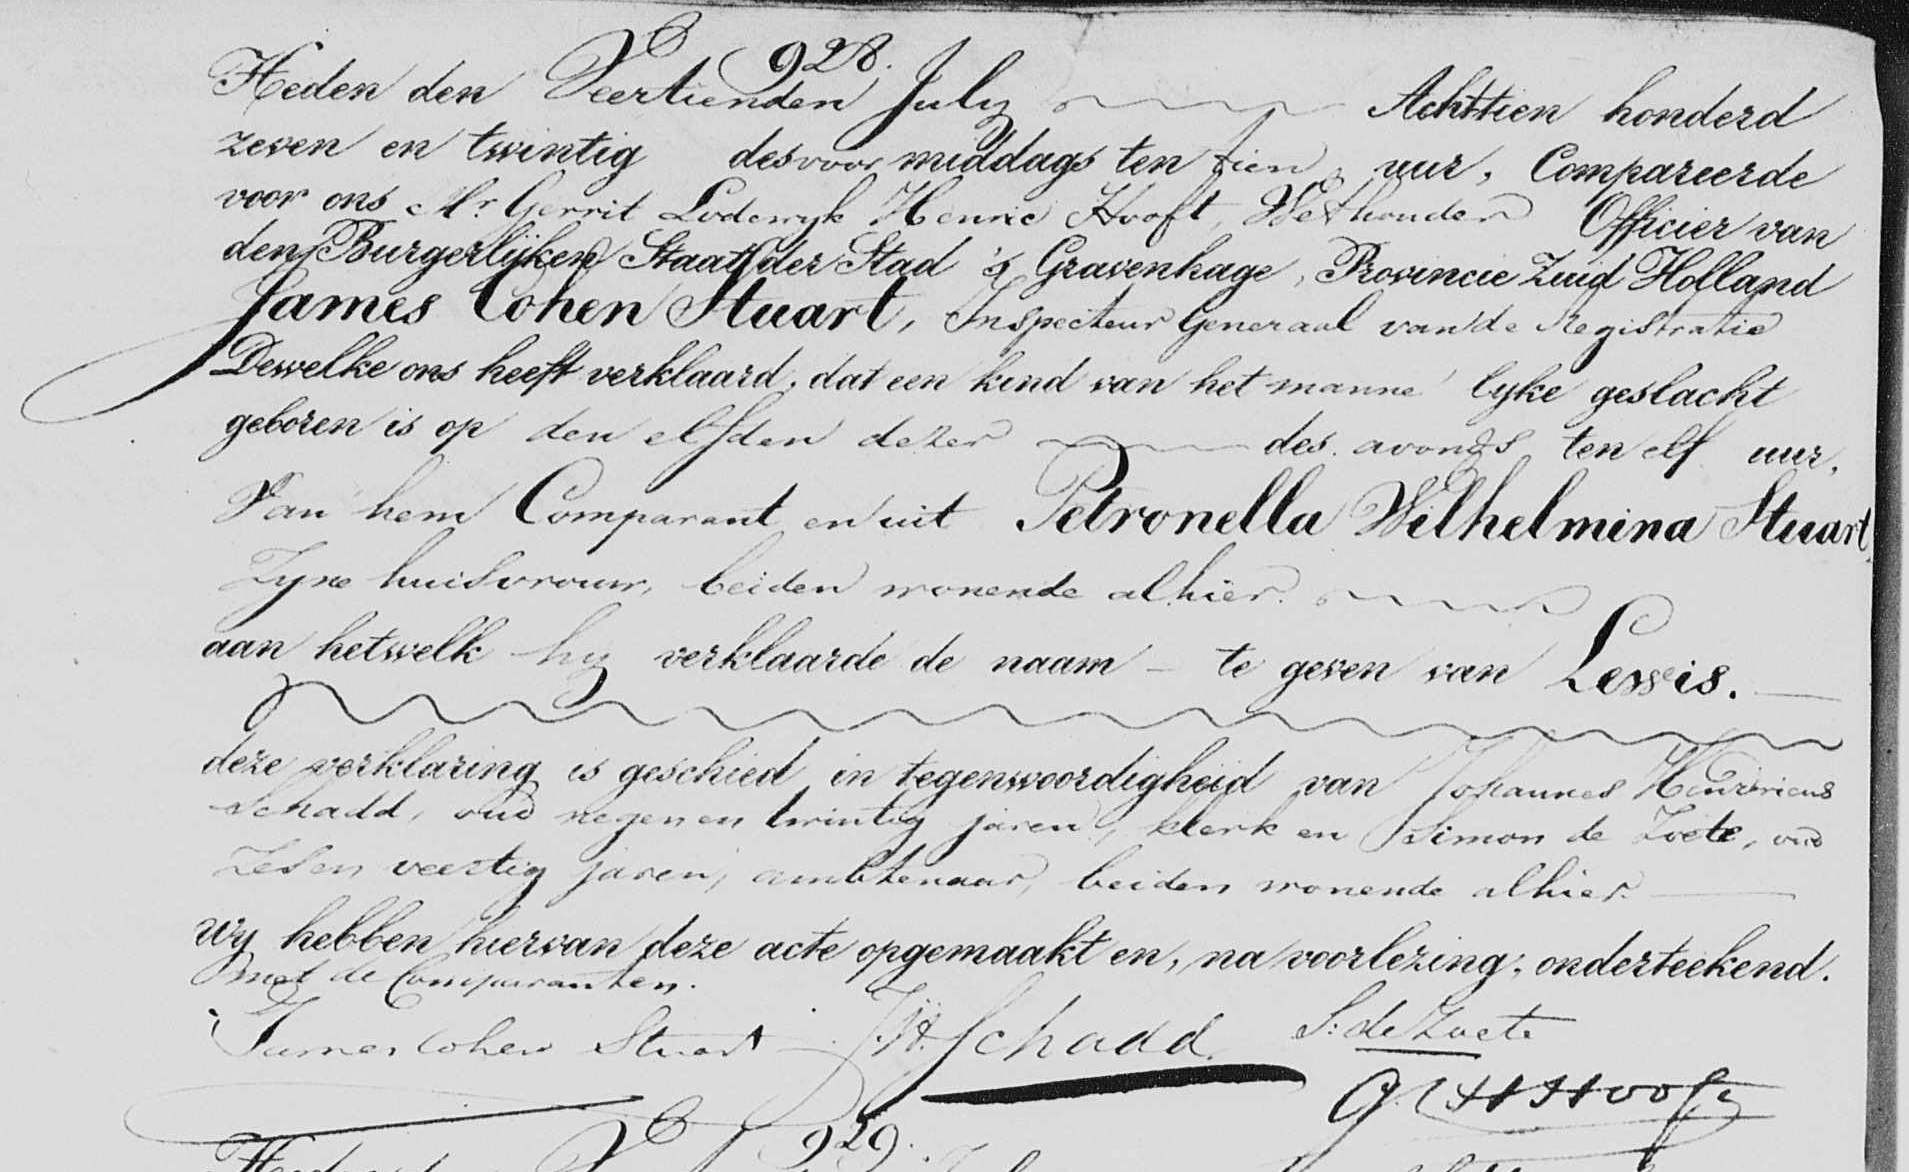 928.
Heden den Veertienden July Achttien honderd
zeven en twintig des voor middags ten tien uur, Compareerde
voor ons Mr. Gerrit Lodewyk Henric Hooft, Wethouder Officier van
den Burgerlijken Staat der Stad 's Gravenhage, Provincie Zuid Holland
James Cohen Stuart, Inspecteur Generaal van de Registratie
Dewelke ons heeft verklaard, dat een kind van het manne lyke geslacht
geboren is op den elfden dezer des avonds ten elf uur,
Van hem Comparant en uit Petronella Wilhelmina Stuart,
Zyne huisvrouw, beiden wonende alhier.
aan hetwelk hy verklaarde de naam te geven van Lewis.
deze verklaring is geschied in tegenwoordigheid van Johannes Henricus
Schadd, oud negen en twintig jaren, klerk en Simon de Zoete, oud
zes en veertig jaren, ambtenaar, beiden wonende alhier
Wy hebben hiervan deze acte opgemaakt en, na voorlezing, onderteekend.
met de Comparanten.
James Cohen Stuart J.H. Schadd. S: de Zoete
G. L H Hooft
929.
Heden